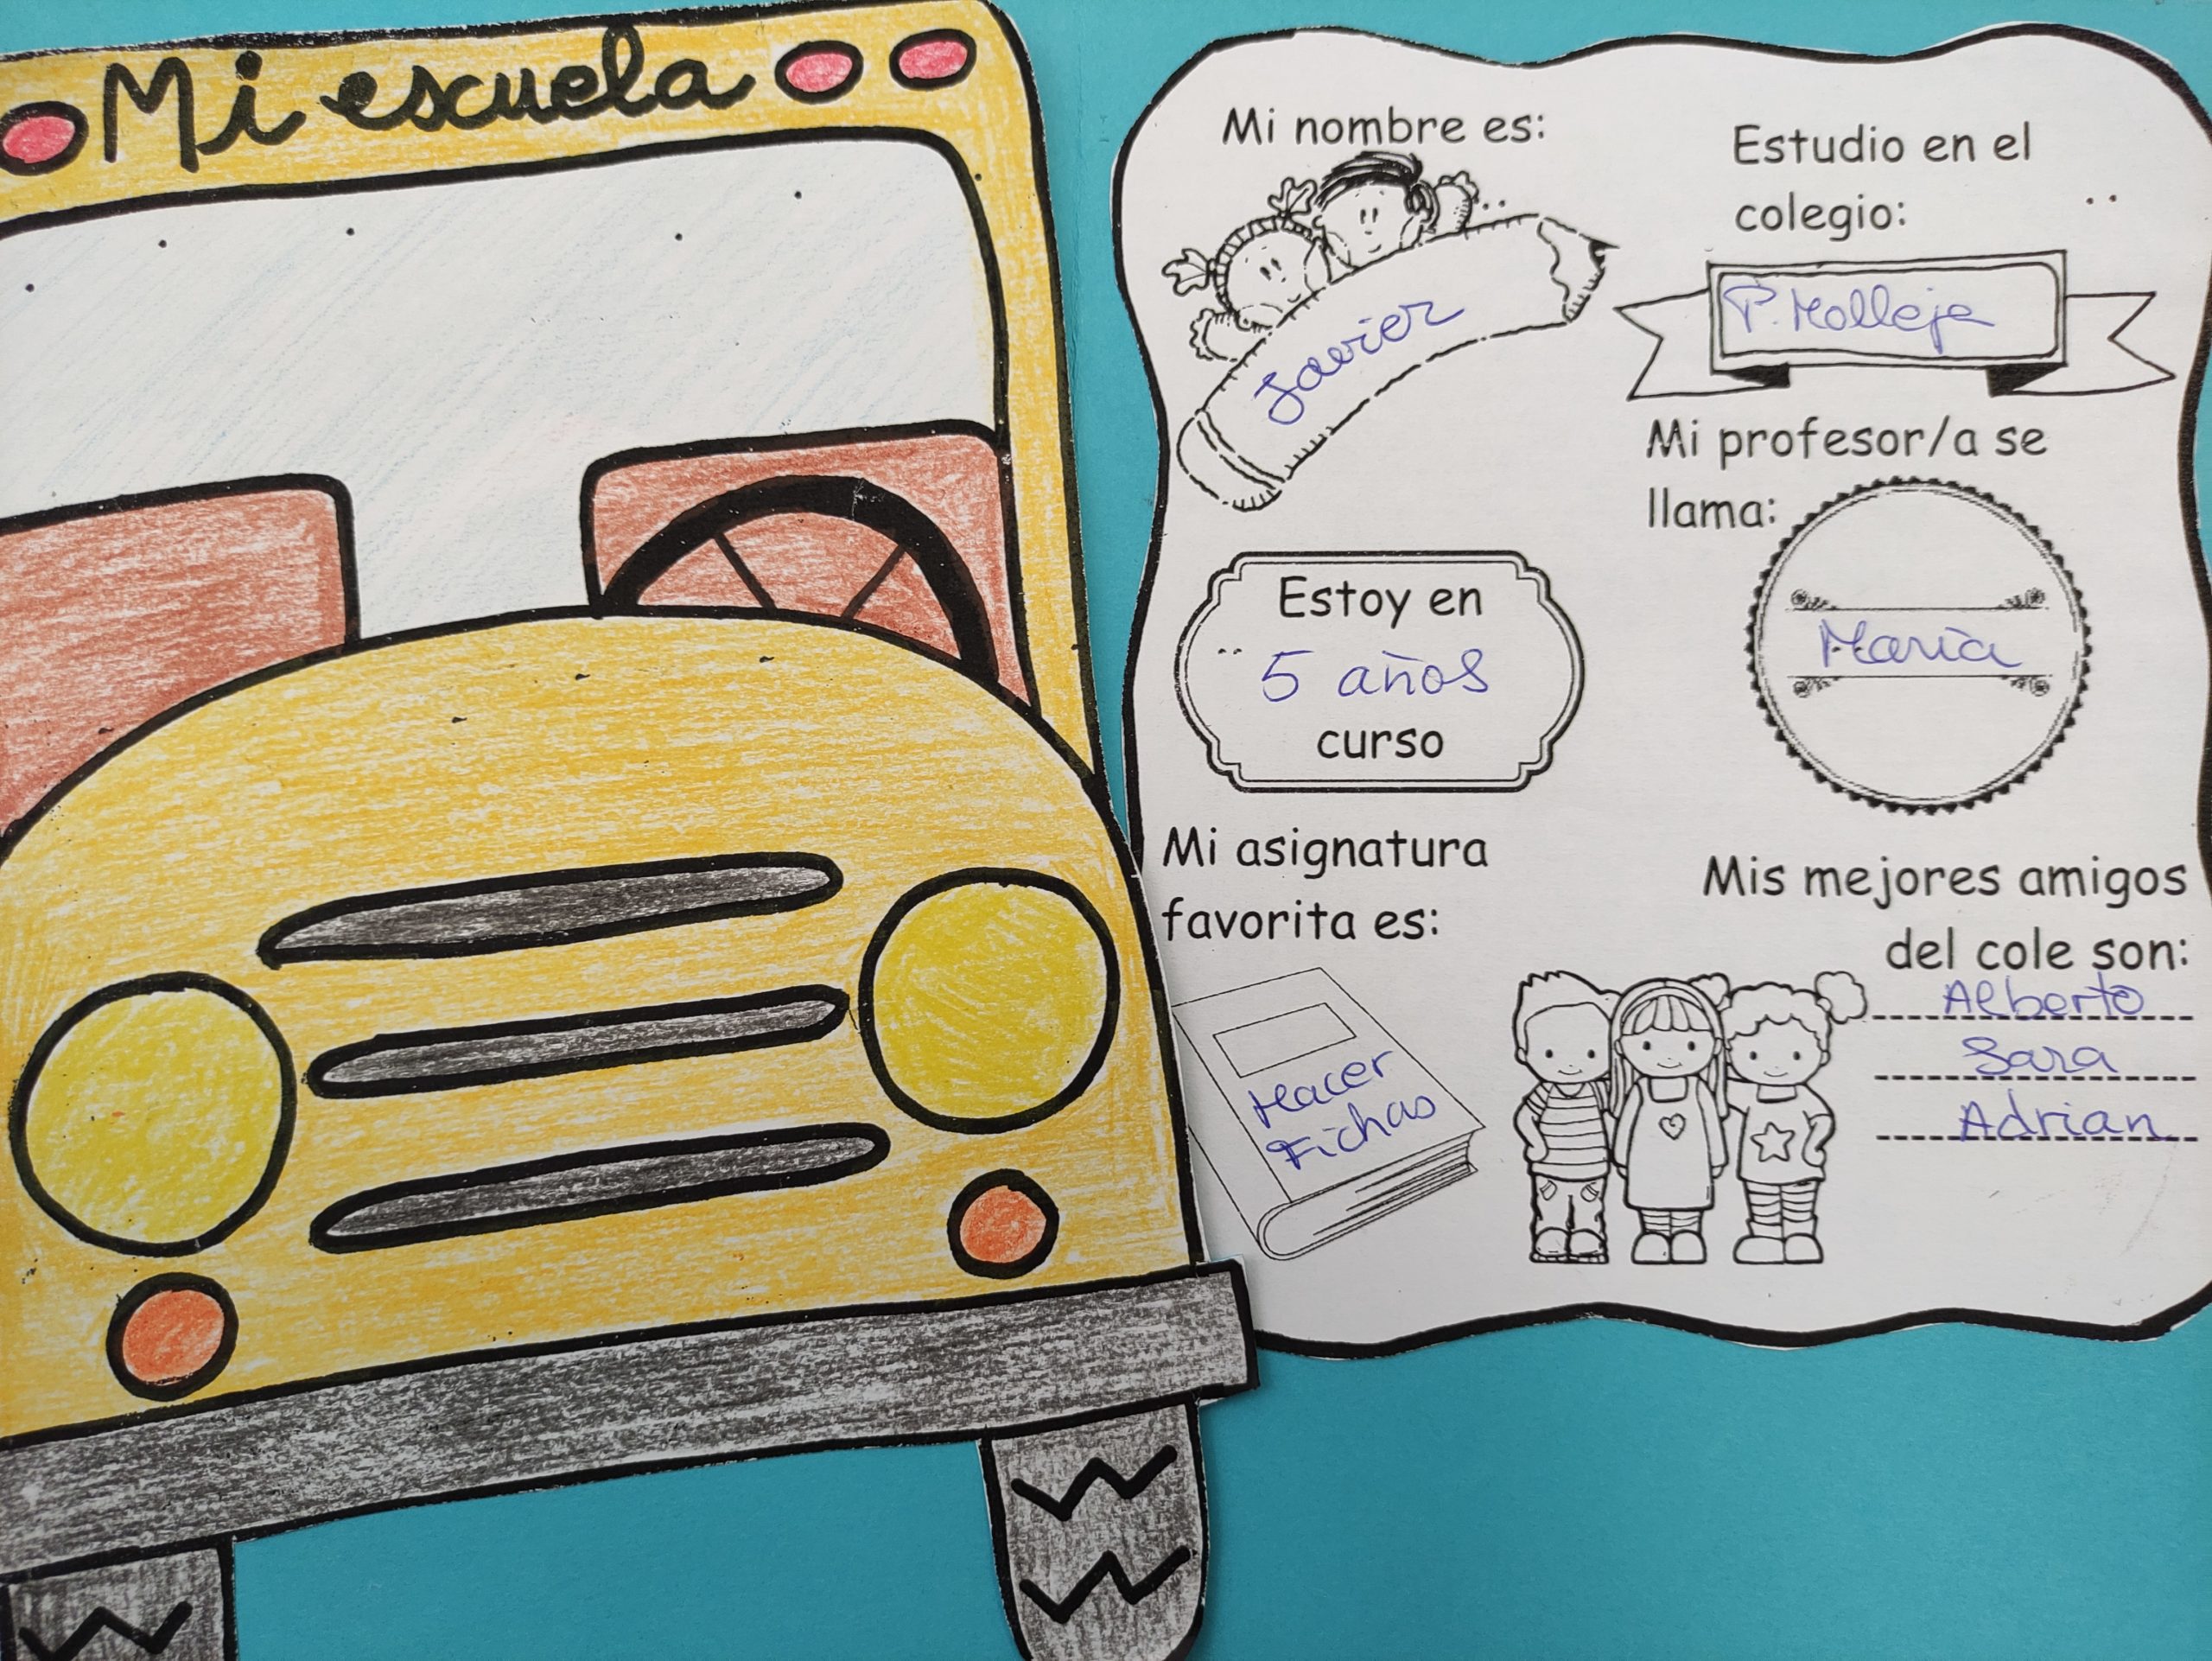 Mi escuela
Mi nombre es:
Javier
Estudio en el
colegio:
P. Molleja
Mi profesor/a se
llama:
María
Estoy en
5 años
curso
Mi asignatura
favorita es:
Hacer
Fichas
Mis mejores amigos
del cole son:
Alberto
Sara
Adrian